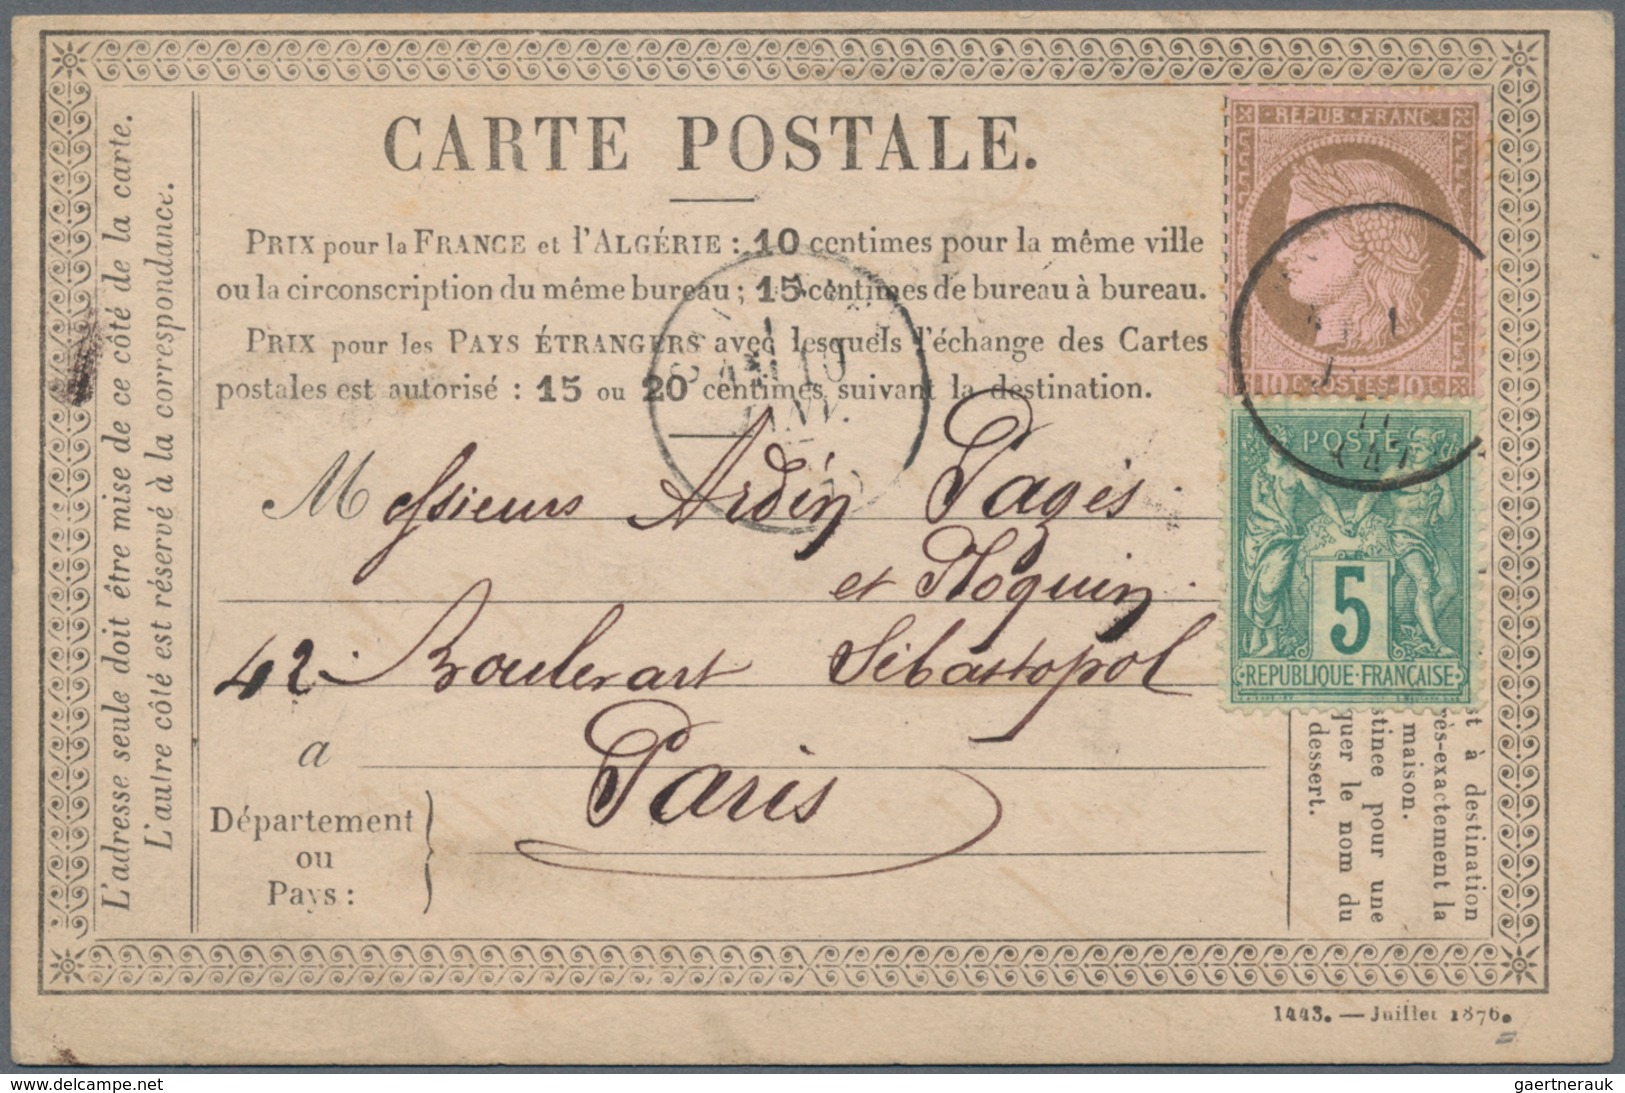 CARTE POSTALE.
PRIX pour la FRANCE et l'ALGÉRIE : 10 centimes pour la même ville
ou la circonscription du même bureau ; 15 centimes de bureau à bureau.
PRIX pour les PAYS ÉTRANGERS avec lesquels l'échange des Cartes
postales est autorisé : 15 ou 20 centimes suivant la destination.
Messieurs Ardin Pagès
et Hoquin
42 Boulevart Sébastopol
a Paris
Département
ou
Pays :
L'adresse seule doit être mise de ce côté de la carte.
L'autre côté est réservé à la correspondance.
REPUB FRANC
10 C. POSTES 10 C.
POSTE
5
REPUBLIQUE FRANÇAISE
JANV.
à destination
rès-exactement la
maison.
stinée pour une
quer le nom du
dessert.
1443. — Juillet 1876.
gaertnerauk@delcampe.net